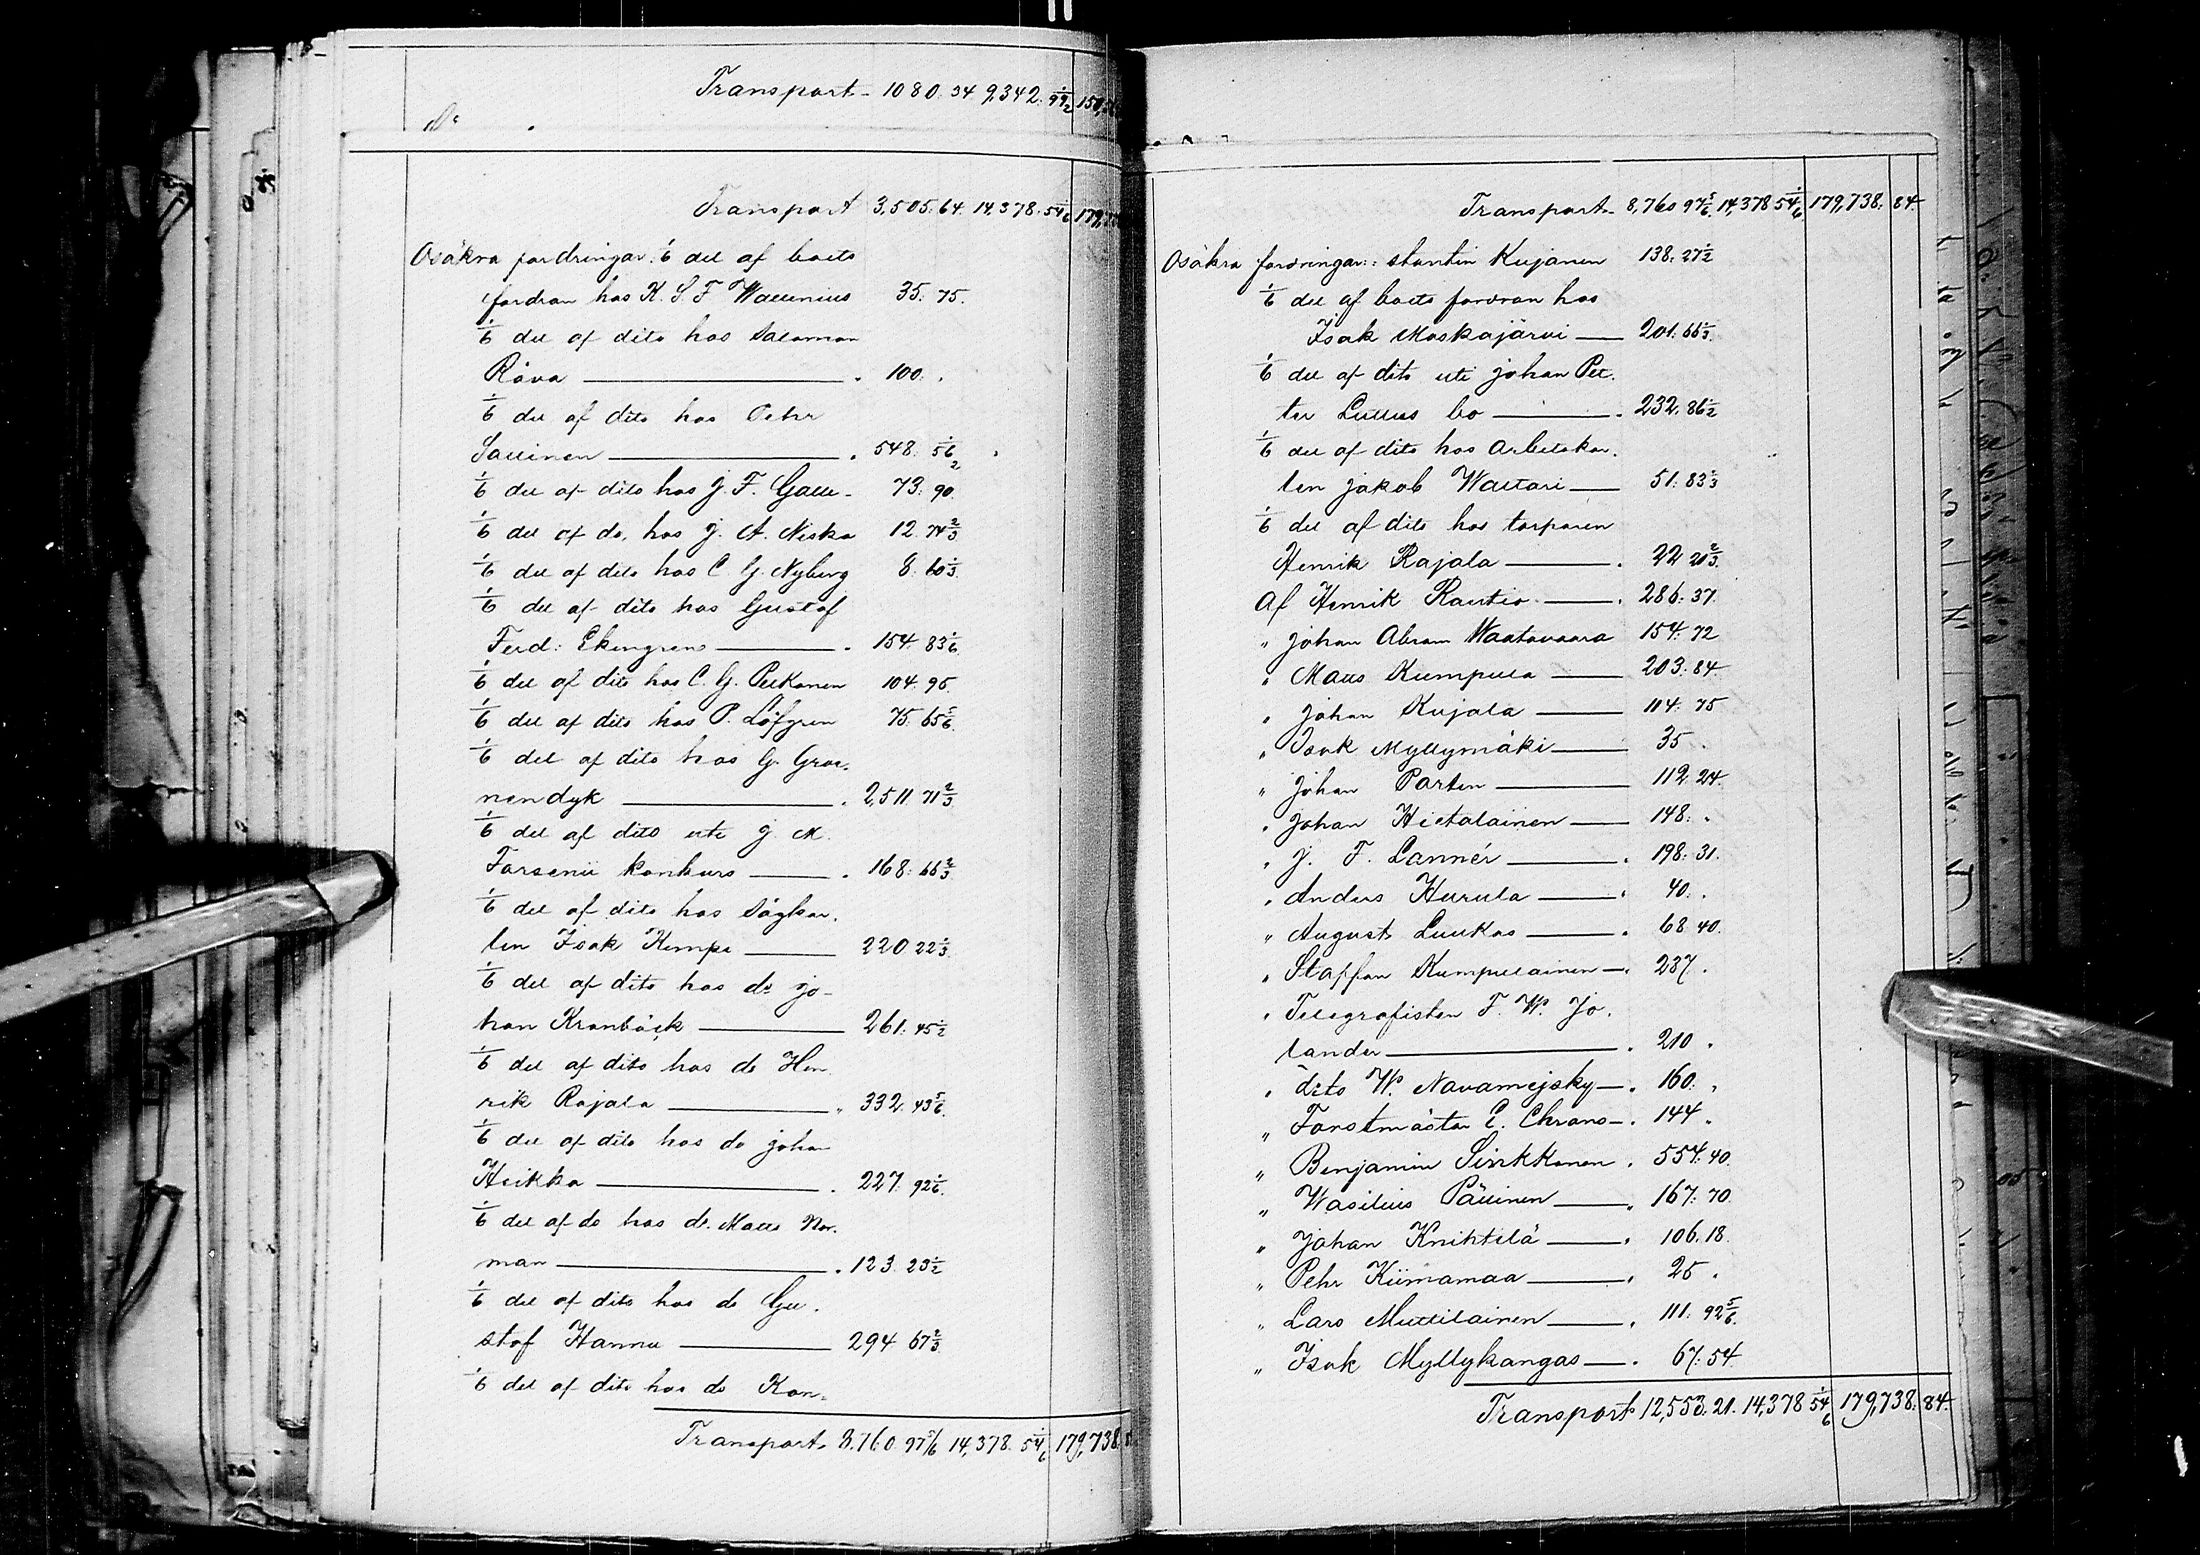 Transport 1080. 34 9,342. 99 1/2
Transport 3,505. 64. 14,378. 54 1/6
Osäkra fordringar: 1/6 del af boets
fordran hos K. S. F Wallenius 35. 75.
1/6 del af dito hos Salomon
Råva 100.
1/6 del af dito hos Pehr
Sallinen 548. 56 1/2
1/6 del af dito hos J. F. Gall 73. 90.
1/6 del af do. hos J. A. Niska 12. 74 2/3
1/6 del af dito hos C G. Nyberg 8. 60 1/3
1/6 del af dito hos Gustaf
Ferd: Ekengrens 154. 83 1/6
1/6 del af dito hos C. G. Pelkonen 104. 95.
1/6 del af dito hos P. Löfgren 75. 65 5/6
1/6 del af dito hos G. Groe-
nendyk 2,511. 71 2/3
1/6 del af dito uti J M.
Forsenii konkurs 168. 66 2/3
1/6 del af dito hos Sågkar-
len Isak Kimpe 220 22 1/3
1/6 del af dito hos do Jo-
han Kronbäck 261. 45 1/2
1/6 del af dito hos do Hen-
rik Rajala 332. 43 5/6
1/6 del af dito hos do Johan
Heikka 227. 92 1/6
1/6 del af do hos do. Matts Nor-
man 123. 23 1/2
1/6 del af dito hos do Gu-
staf Hannu 294 67 2/3
1/6 del af dito hos do Kon-
Transport 8.760. 97 5/6 14,378. 54 1/6 179,738.
Transport 8,760 97 5/6 14,378 54 1/6 179,738. 84.
Osäkra fordringar: stantin Kujanen 138. 27 1/2
1/6 del af boets fordran hos
Isak Moskajärvi 201. 66 2/3
1/6 del af dito uti Johan Pet-
ter Lullus bo 232. 86 1/2
1/6 del af dito hos Arbetskar-
len Jakob Waltari 51. 83 1/3
1/6 del af dito hos torparen
Henrik Rajala 22 20 2/3
Af Henrik Rautio 286. 37.
" Johan Abram Waatovaara 154. 72
" Matts Kumpula 203. 84.
" Johan Kujala 114. 75
" Isak Myllymäki 35.
" Johan Porten 112. 24.
" Johan Hietalainen 148.
" J. F. Lannér 198. 31.
" Anders Hurula 40.
" August Luukas 68. 40.
" Staffan Kumpulainen 237.
" Telegrafisten F. W. Jo-
lander 210
" dito W. Navamejsky 160.
" Forstmästar E. Chrons 144
" Benjamin Sirkkonen 554. 40.
" Wasilius Pällinen 167. 70.
" Johan Knihtilä 106. 18.
" Pehr Kiimamaa 25
" Lars Muttilainen 111. 92 5/6
" Isak Myllykangas 67. 54
Transport 12,553. 21. 14,378 54 1/6 179,738. 84.